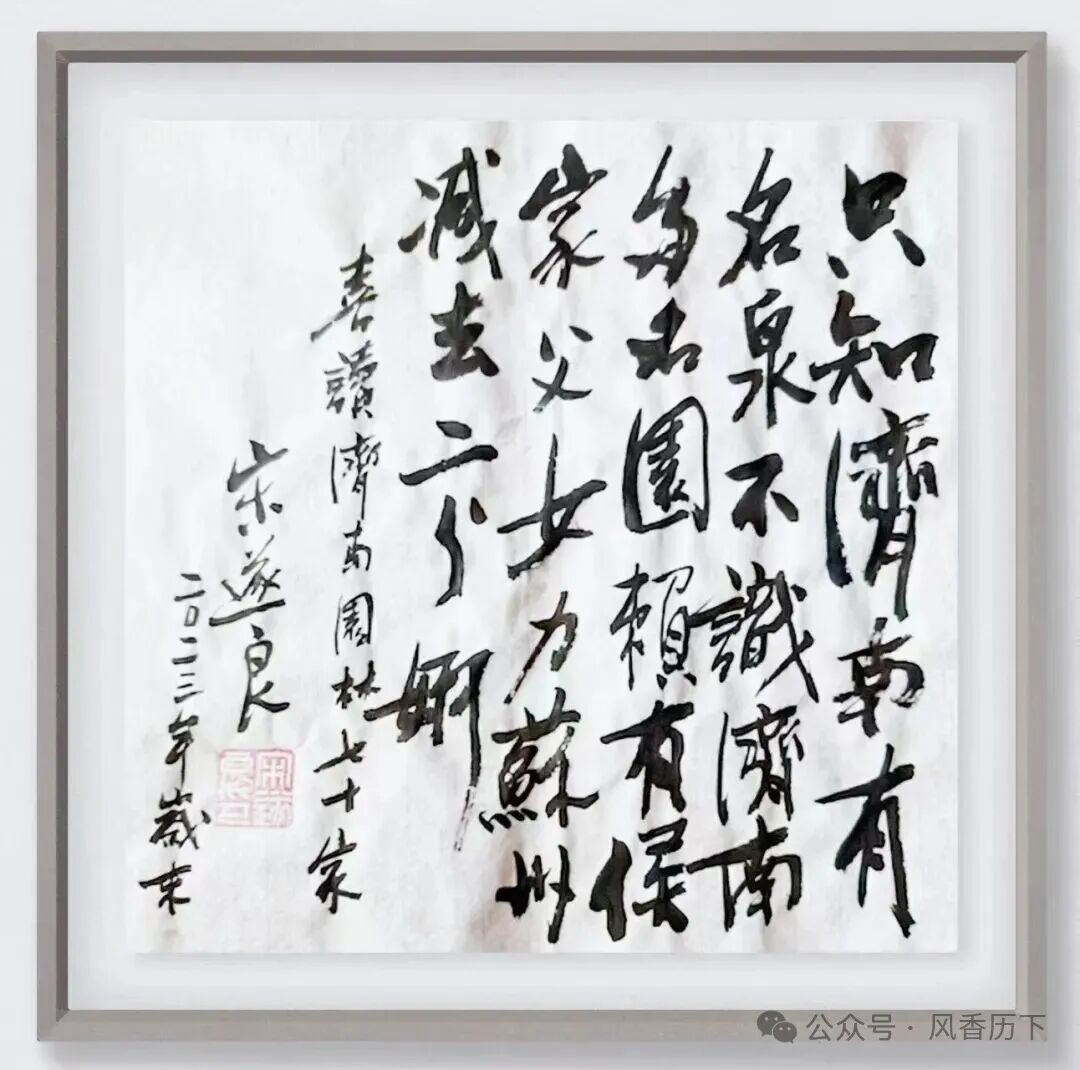 只知濟南有
名泉不識濟南
多名園賴有侯
家父女力蘇州
減去二分妍
喜讀濟南園林七十家
宋遂良
二〇二三年歲末
公众号 · 风香历下